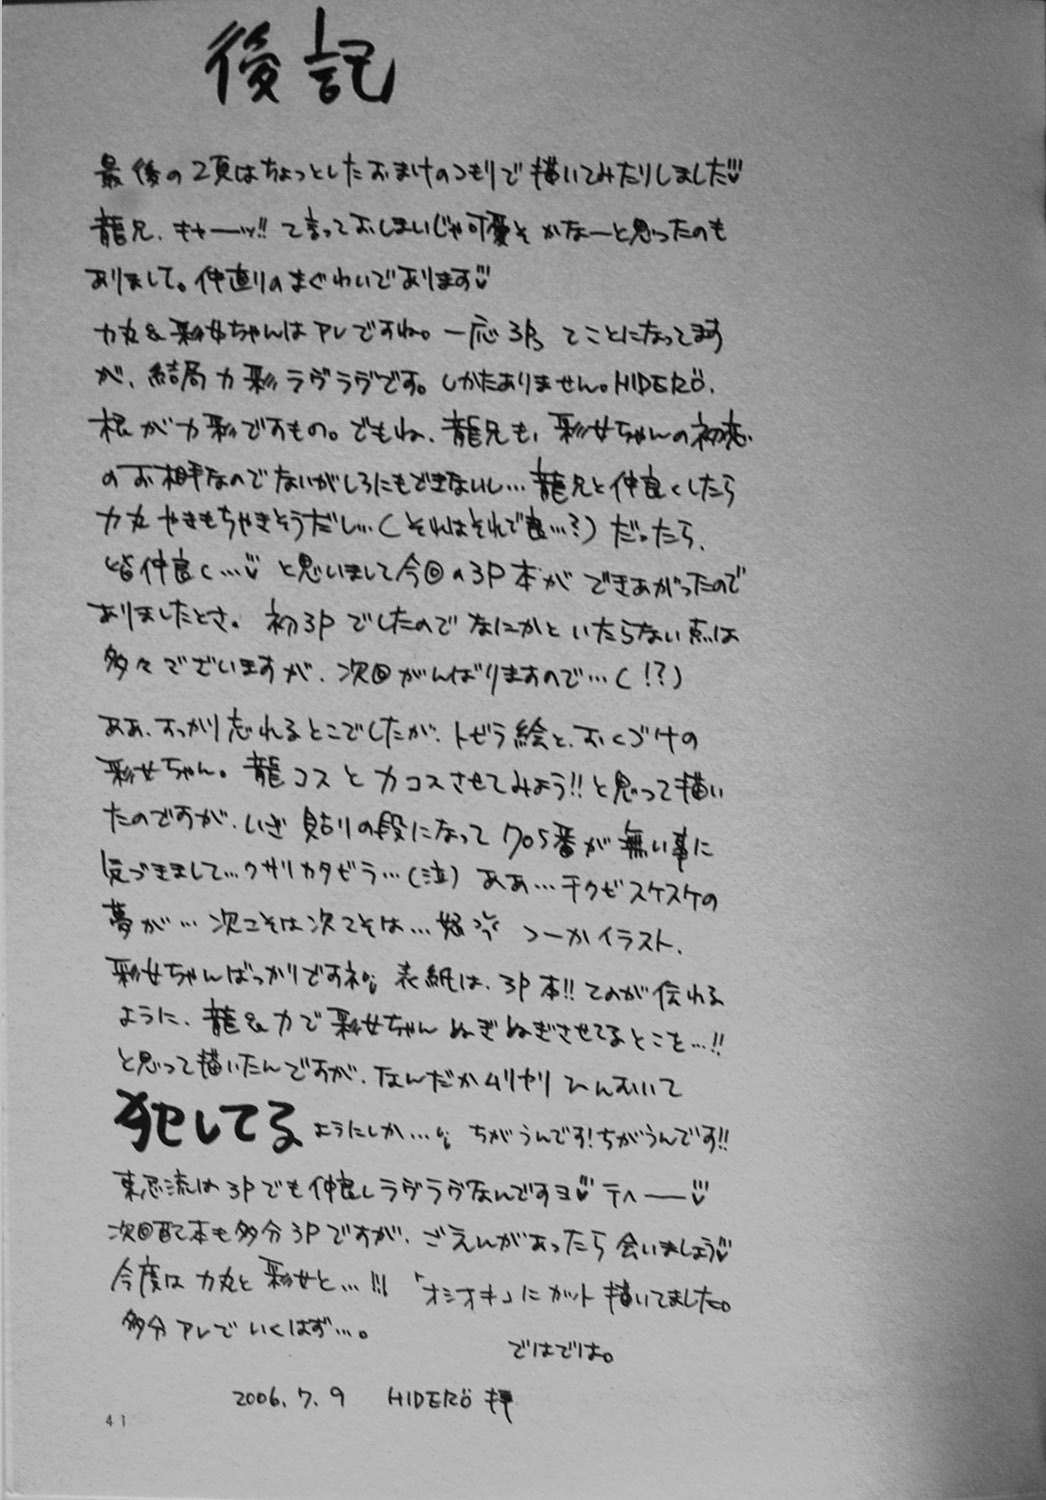 後記
最後の2頁はちょっとしたおまけのつもりで描いてみたりしました
龍兄、キャーッ!!て言っておしまいじゃ可愛そかなーと思ったのも
ありまして。仲直りのまぐわいであります
力丸&彩女ちゃんはアレですね。一応3P、てことになってます
が、結局力彩ラヴラヴです。しかたありません。HIDERÖ、
根が力彩ですもの。でもね、龍兄も、彩女ちゃんの初恋
のお相手なのでないがしろにもできないし…龍兄と仲良くしたら
力丸やきもちやきそうだし…(それはそれで良…?)だったら、
皆仲良く…と思いまして今回の3P本ができあがったので
ありましたとさ。初3Pでしたのでなにかといたらない点は
多々でざいますが、次回がんばりますので…(!?)
ああ、すっかり忘れるとこでしたが、トビラ絵と、おくづけの
彩女ちゃん。龍コスと力コスさせてみよう!!と思って描い
たのですが、いざ貼りの段になって705番が無い事に
気づきまして…クサリカタビラ…(泣)ああ…チクビスケスケの
夢が…次こそは次こそは…怒 つーかイラスト、
彩女ちゃんばっかりですネ 表紙は、3P本!!てのが伝わる
ように、龍&力で彩女ちゃんぬぎぬぎさせてるとこを…!!
と思って描いたんですが、なんだかムリヤリひんむいて
犯してる ようにしか… ちがうんです!ちがうんです!!
東忍流は3Pでも仲良しラヴラヴなんですヨ テヘー
次回配本も多分3Pですが、ごえんがあったら会いましょう
今度は力丸と彩女と…!!!「オシオキ」にカット描いてました。
多分アレでいくはず…。
ではでは。
2006.7.9 HIDERÖ 拝
41